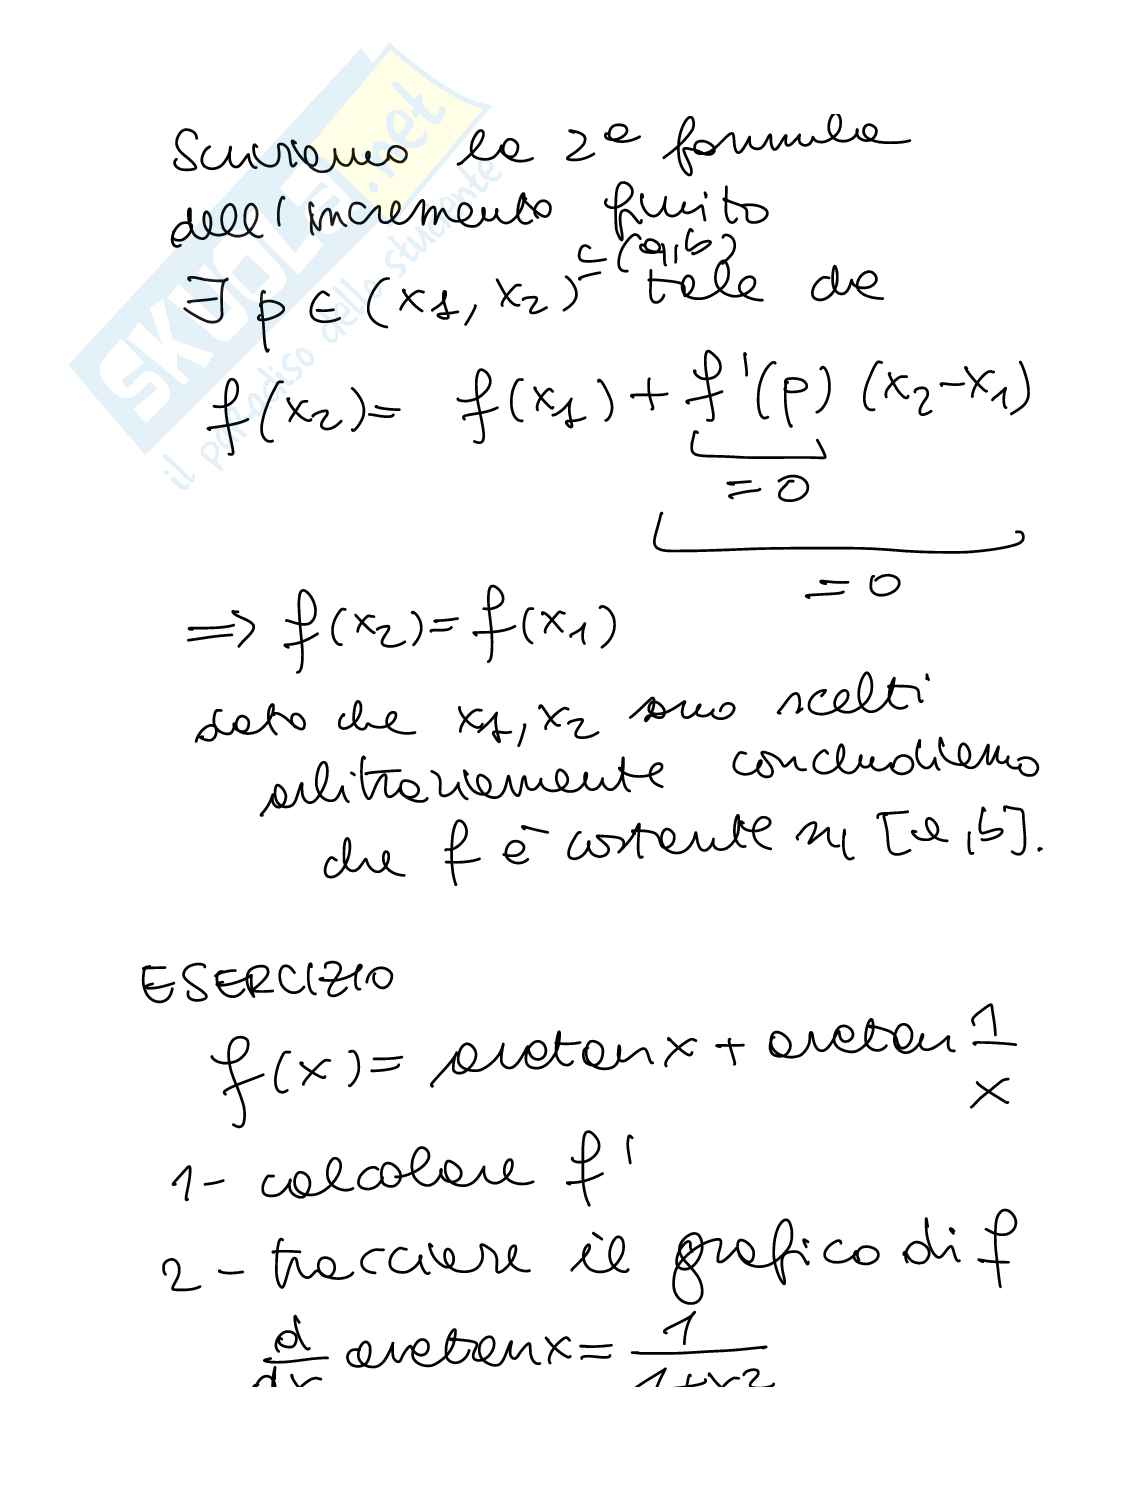 SKUOLA.net
il paradiso dello studente
Scriviamo la 2ª formula
dell'incremento finito
∃ p ∈ (x1, x2) ⊆ (a,b) tale che
f(x2) = f(x1) + f'(p) (x2-x1)
= 0
= 0
⇒ f(x2) = f(x1)
dato che x1, x2 sono scelti
arbitrariamente concludiamo
che f è costante in [a,b].
ESERCIZIO
f(x) = arctan x + arctan 1/x
1- calcolare f'
2- tracciare il grafico di f
d/dx arctan x = 1/1+x2